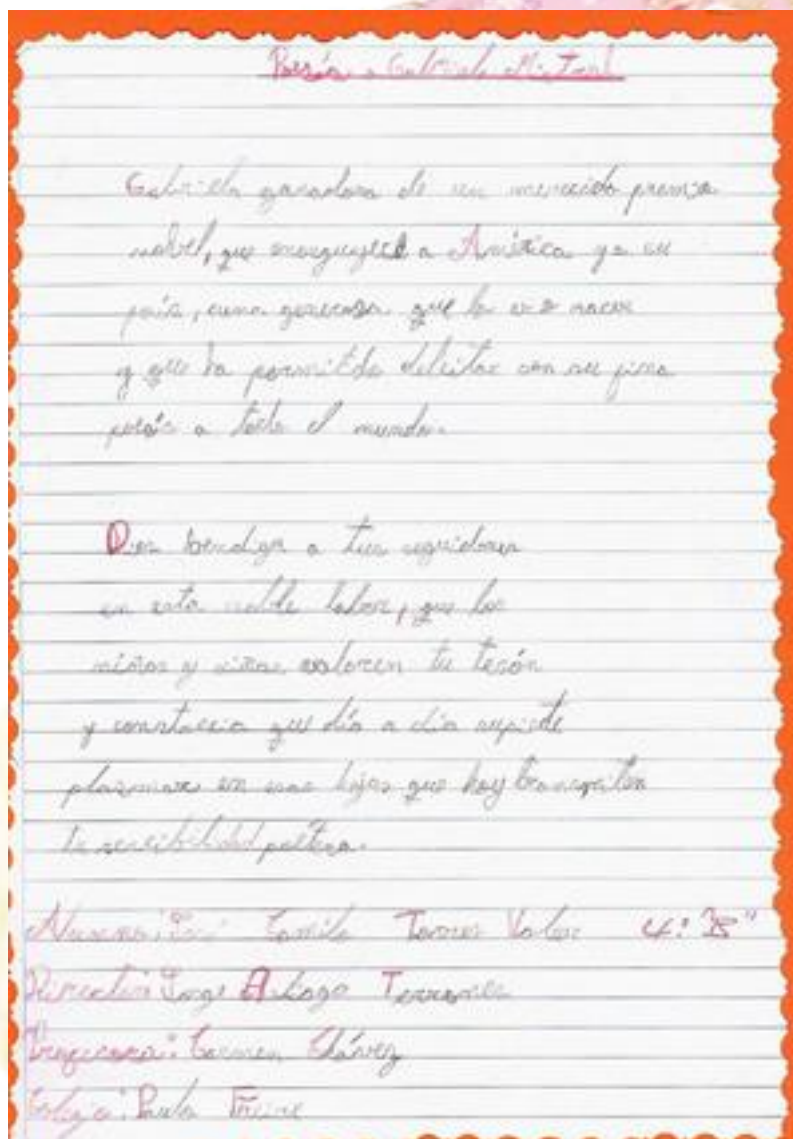 Poesía a Gabriela Mistral
Gabriela ganadora de un merecido premio
nobel, que enorgulleció a América y a su
país, cuna generosa que la vio nacer
y que ha permitido deleitar con su fina
poesía a todo el mundo.
Dios bendiga a tus seguidores
en esta noble labor, que los
niños y niñas valoren tu tesón
y constancia que día a día supiste
plasmar en esas hojas que hoy
la sencibilidad poética.
Camila Torres 4º "B"
Jorge Terrones
Profesora: Carmen Chávez
Colegio: Paulo Freire